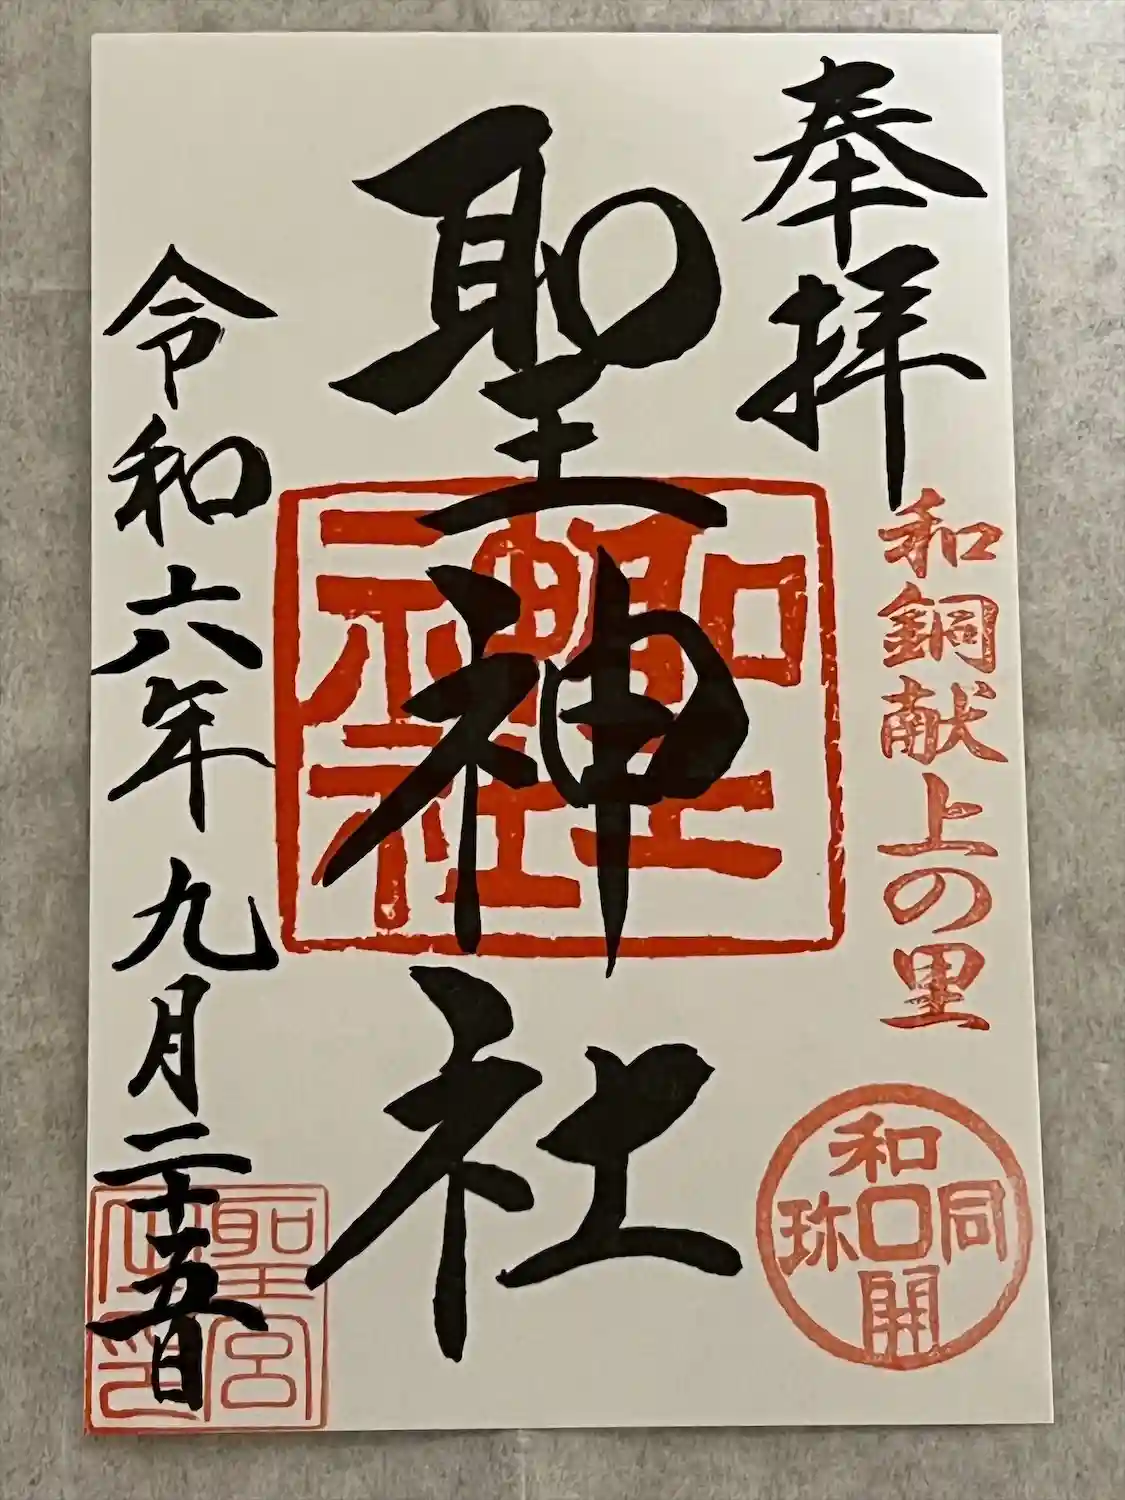 奉拝
和銅献上の里
和同開珎
聖神社
聖神社
令和六年九月二十五日
聖宮